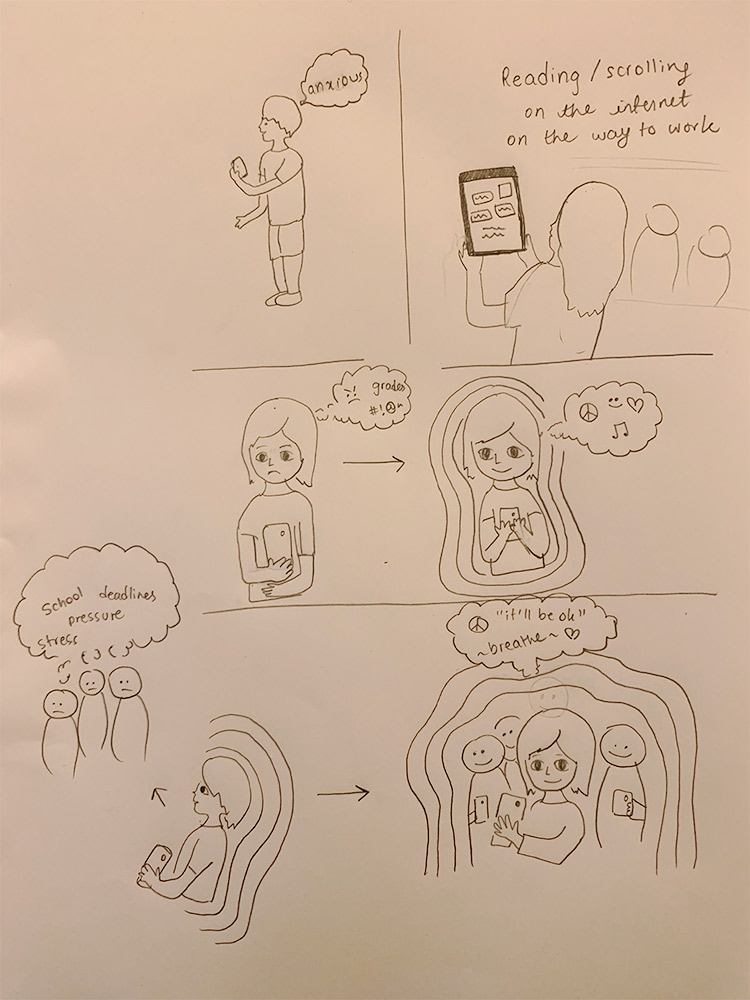 anxious
Reading / scrolling
on the internet
on the way to work
grades
#!
School deadlines
pressure
stress
"it'll be ok"
~breathe~